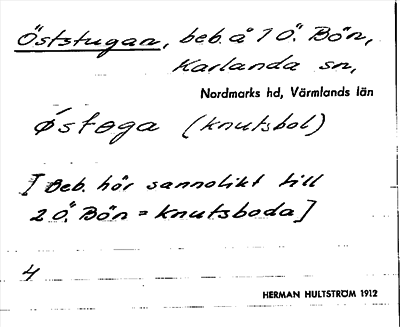 Öststugan, beb. å 1 Ö. Bön,
Karlanda sn,
Nordmarks hd, Värmlands län
östøga (knutsbol)
[Beb. hör sannolikt till
2 Ö. Bön = Knutsboda]
4
HERMAN HULTSTRÖM 1912